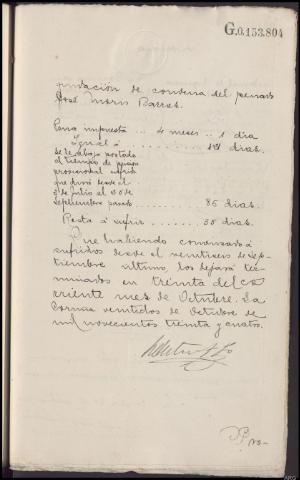 G.0.153.804
quidación de condena del penado
José Marn Barras.
Pena impuesta .. 4 meses .. 1 dia
Igual á ........ 121 dias.
Se le abona por toda
el tiempo de prision
provisional sufrida
que duró desde el
5 de Julio al 28 de
Septiembre pasado ...... 86 dias.
Resta á sufrir ...... 35 dias.
Que habiendo comenzado á
sufrirlos desde el veintiseis de Sep-
tiembre último, los dejará ter-
minados en treinta del co-
rriente mes de Octubre. La
Coruña veintidos de Octubre de
mil novecientos treinta y cuatro.